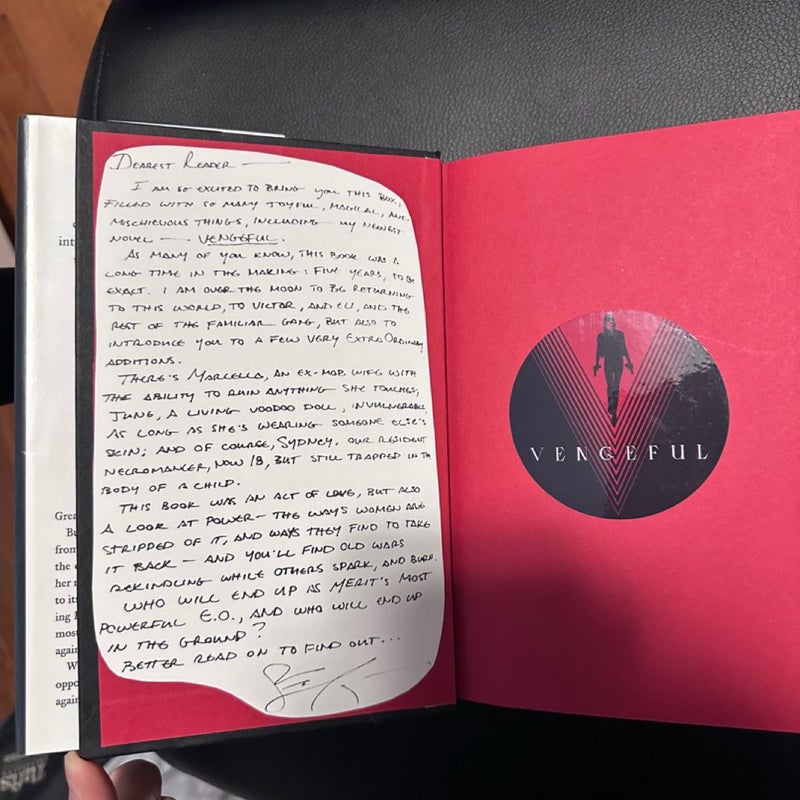 int
Grea
Bu
from
the c
her r
to its
ing
most
again
W
oppo
again
DEAREST READER —
I AM SO EXCITED TO BRING YOU THIS BOX,
FILLED WITH SO MANY JOYFUL, MAGICAL, AND
MISCHIEVOUS THINGS, INCLUDING MY NEWEST
NOVEL — VENGEFUL.
AS MANY OF YOU KNOW, THIS BOOK WAS A
LONG TIME IN THE MAKING: FIVE YEARS, TO BE
EXACT. I AM OVER THE MOON TO BE RETURNING
TO THIS WORLD, TO VICTOR, AND ELI, AND THE
REST OF THE FAMILIAR GANG, BUT ALSO TO
INTRODUCE YOU TO A FEW VERY EXTRAORDINARY
ADDITIONS.
THERE'S MARCELLA, AN EX-MOB WIFE WITH
THE ABILITY TO RUIN ANYTHING SHE TOUCHES;
JUNE, A LIVING VOODOO DOLL, INVULNERABLE
AS LONG AS SHE'S WEARING SOMEONE ELSE'S
SKIN; AND OF COURSE, SYDNEY, OUR RESIDENT
NECROMANCER, NOW 18, BUT STILL TRAPPED IN TH
BODY OF A CHILD.
THIS BOOK WAS AN ACT OF LOVE, BUT ALSO
A LOOK AT POWER — THE WAYS WOMEN ARE
STRIPPED OF IT, AND WAYS THEY FIND TO TAKE
IT BACK — AND YOU'LL FIND OLD WARS
REKINDLING WHILE OTHERS SPARK, AND BURN.
WHO WILL END UP AS MERIT'S MOST
POWERFUL E.O., AND WHO WILL END UP
IN THE GROUND?
BETTER READ ON TO FIND OUT...
VENGEFUL